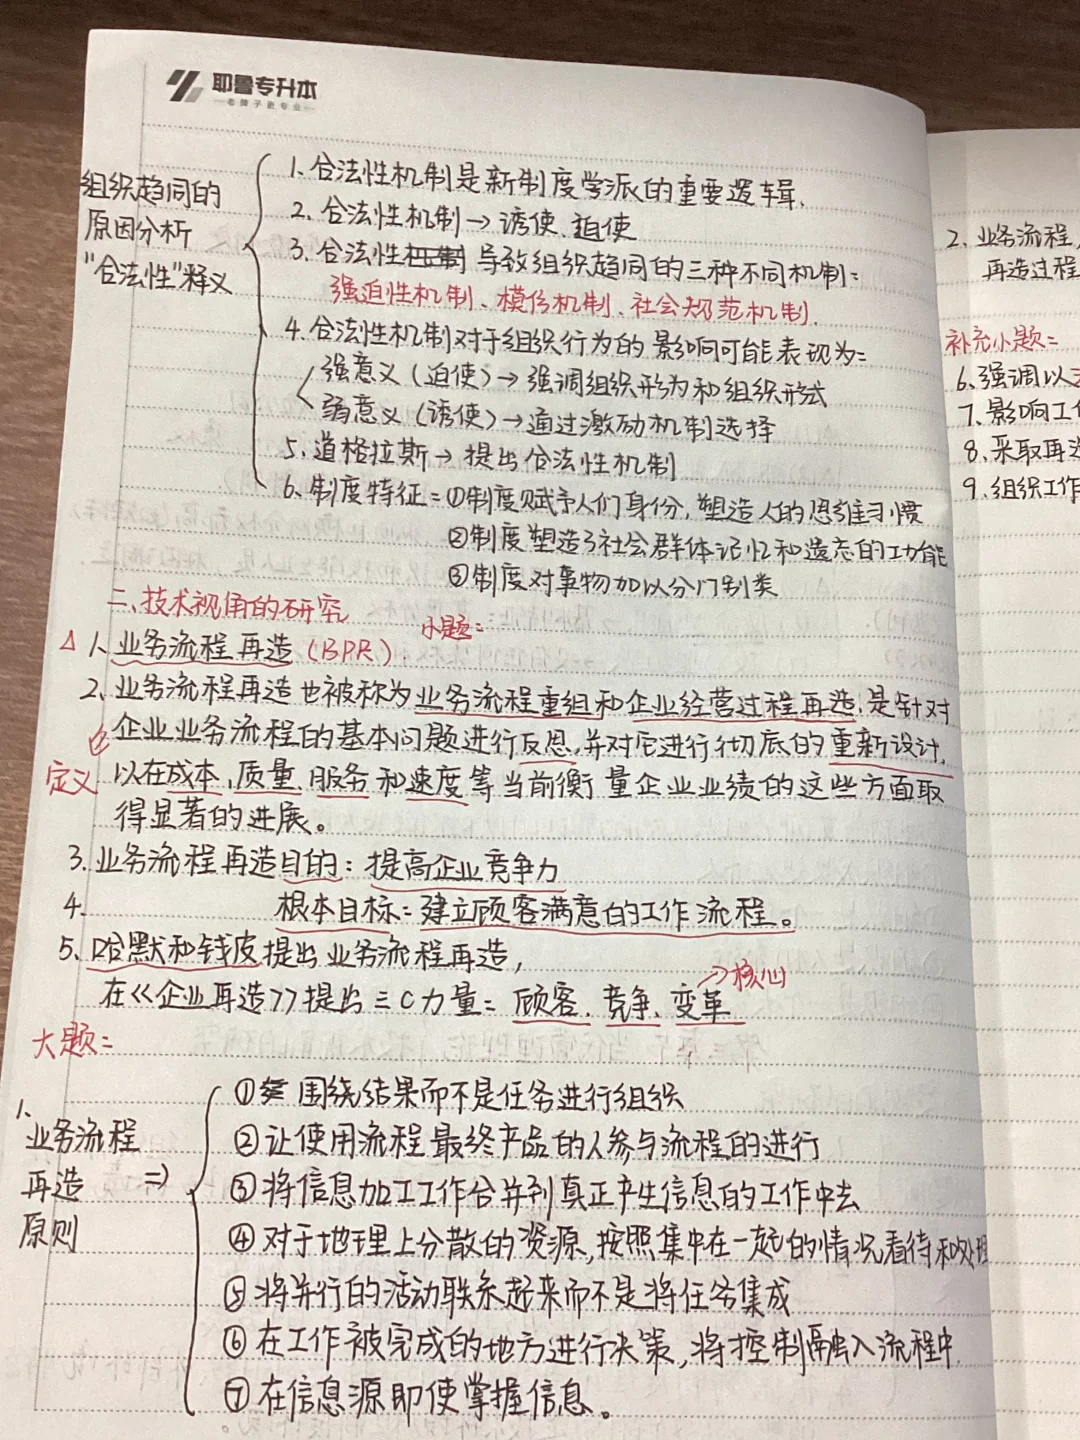 耶鲁专升本
老牌子更专业
组织趋同的
原因分析
"合法性"释义
1. 合法性机制是新制度学派的重要逻辑.
2. 合法性机制→诱使、迫使
3. 合法性机制 导致组织趋同的三种不同机制:
强迫性机制、模仿机制、社会规范机制.
4. 合法性机制对于组织行为的影响可能表现为:
强意义(迫使)→强调组织形为和组织形式
弱意义(诱使)→通过激励机制选择
5. 道格拉斯→提出合法性机制
6. 制度特征=①制度赋予人们身份,塑造人的思维习惯
②制度塑造了社会群体记忆和遗忘的功能
③制度对事物加以分门别类
二、技术视角的研究
小题:
△ 1、业务流程再造(BPR)
2、业务流程再造也被称为业务流程重组和企业经营过程再造.是针对
企业业务流程的基本问题进行反思,并对它进行彻底的重新设计,
定义
以在成本、质量、服务和速度等当前衡量企业业绩的这些方面取
得显著的进展。
3. 业务流程再造目的:提高企业竞争力
4. 根本目标=建立顾客满意的工作流程。
5、哈默和钱皮提出业务流程再造,
在《企业再造》提出三C力量=顾客、竞争、变革
→核心
大题:
1、
业务流程
再造 ⇒
原则
① 围绕结果而不是任务进行组织
②让使用流程最终产品的人参与流程的进行
③将信息加工工作合并到真正产生信息的工作中去
④对于地理上分散的资源,按照集中在一起的情况看待和处理
⑤将并行的活动联系起来而不是将任务集成
⑥在工作被完成的地方进行决策,将控制融入流程中.
⑦在信息源即使掌握信息。
2. 业务流程
再造过程
补充小题:
6、强调以
7、影响工
8、采取再造
9、组织工作